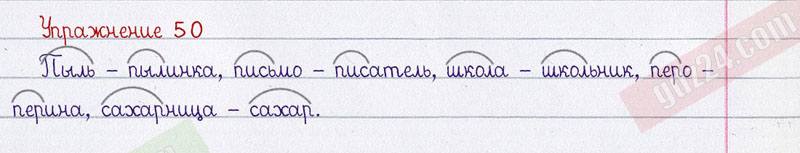 Упражнение 50
Пыль – пылинка, письмо – писатель, школа – школьник, перо –
перина, сахарница – сахар.
gdz24.com